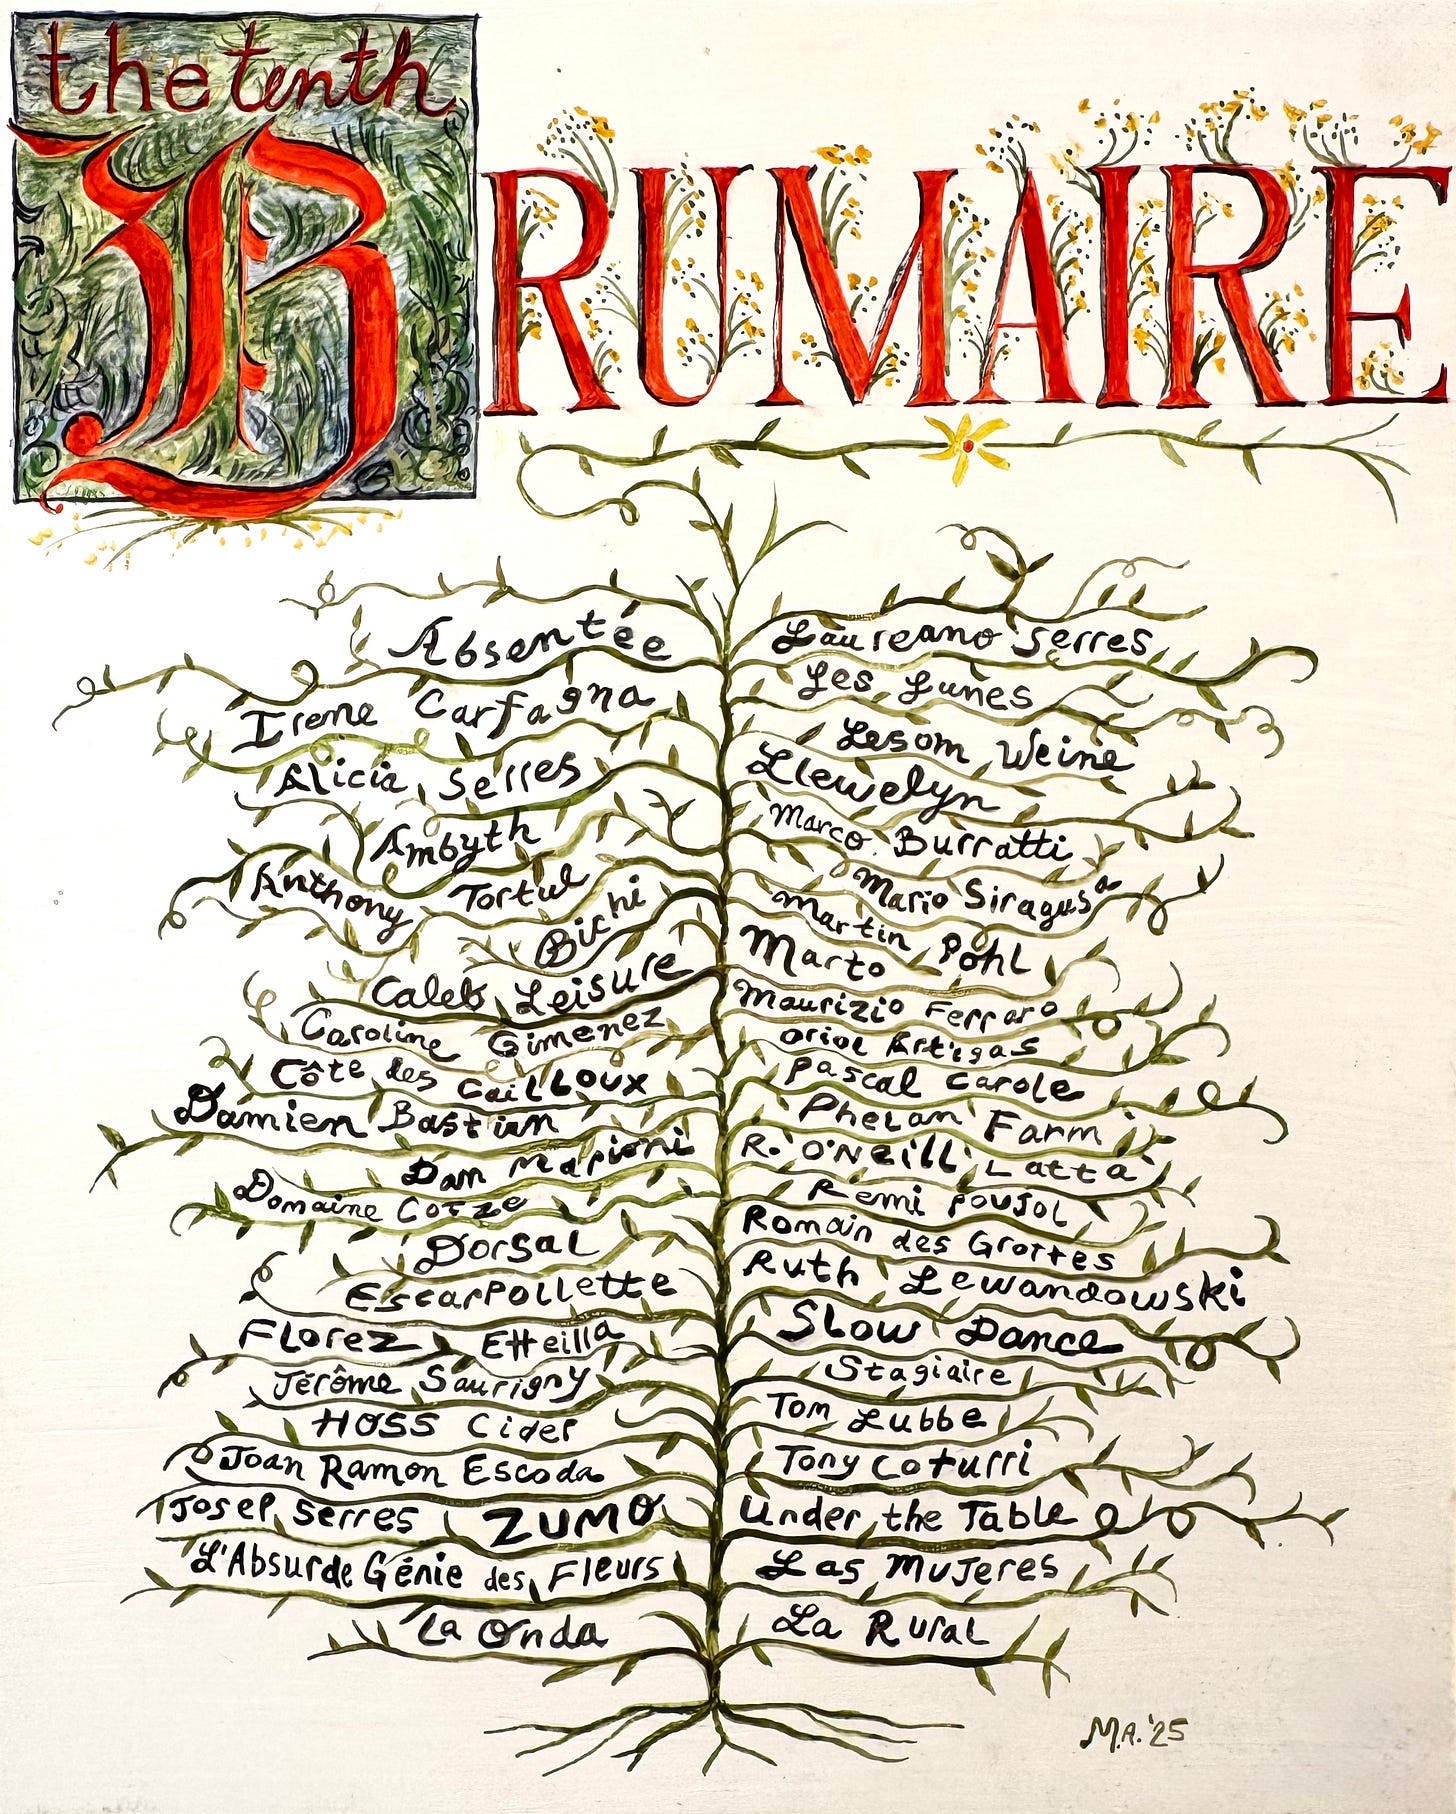 the tenth
BRUMAIRE
Absentee
Irene Carfagna
Alicia Serres
Ambyth
Anthony Tortul
Bichi
Caleb Leisure
Caroline Gimenez
Côte des Cailloux
Damien Bastian
Dan Marioni
Domaine Cotze
Dorsal
Escarpollette
Florez
Etteilla
Jérôme Saurigny
HOSS Cider
Joan Ramon Escoda
Josep Serres
ZUMO
L'Absurde Génie des Fleurs
La Onda
Laureano Serres
Les Lunes
Lesom Weine
Llewelyn
Marco Burratti
Mario Siragusa
Martin Pohl
Marto
Maurizio Ferraro
Oriol Artigas
Pascal Carole
Phelan Farm
R. O'Neill Latta
Remi Poujol
Romain des Grottes
Ruth Lewandowski
Slow Dance
Stagiaire
Tom Lubbe
Tony Coturri
Under the Table
Las Mujeres
La Rural
M.A. '25